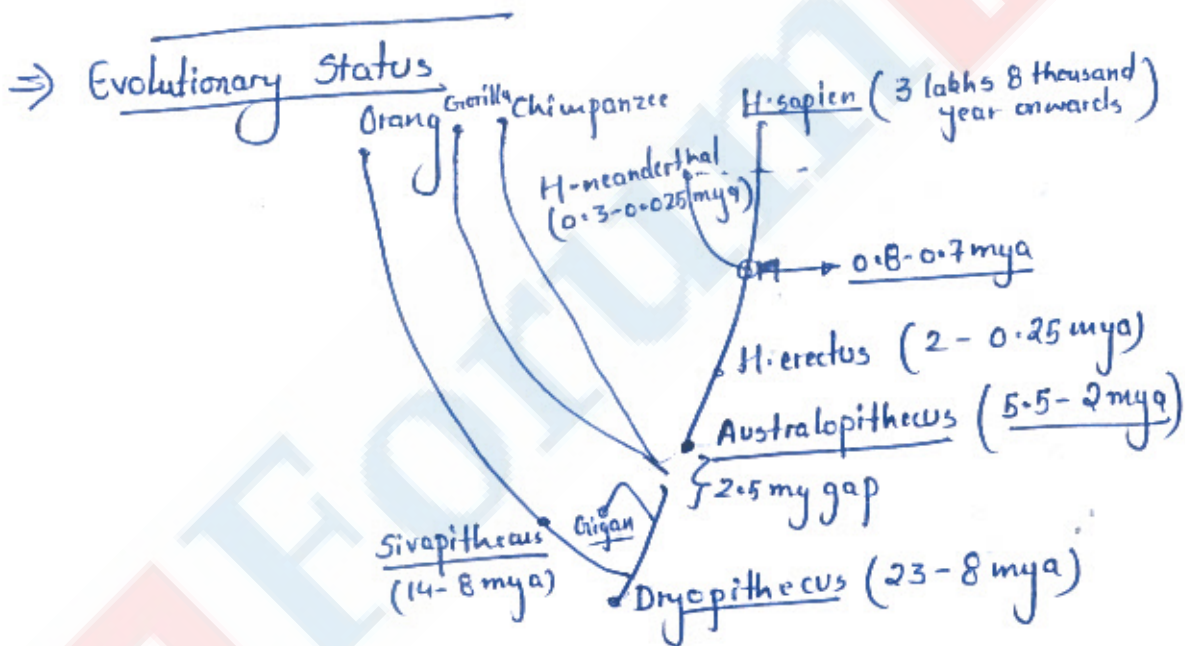 ⇒ Evolutionary Status
Orang Gorilla Chimpanzee
H.sapien (3 lakhs 8 thousand
year onwards)
H-neanderthal
(0.3-0.025 mya)
0.8-0.7 mya
H.erectus (2 - 0.25 mya)
Australopithecus (5.5 - 2 mya)
}2.5 my gap
Gigan
Sivapithecus
(14-8 mya)
Dryopithecus (23-8 mya)
Forum